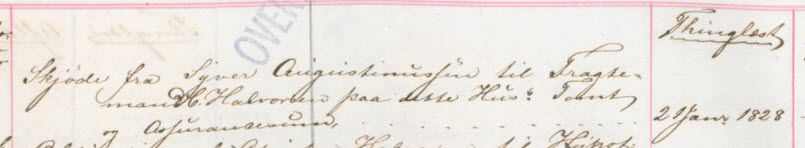 Thinglæst
OVER
Skjöde fra Syver Augustinussön til Fragte-
mand H. Halvorsen paa dette Hus, Tomt
og Assurancesum, 21 Janr. 1828
til